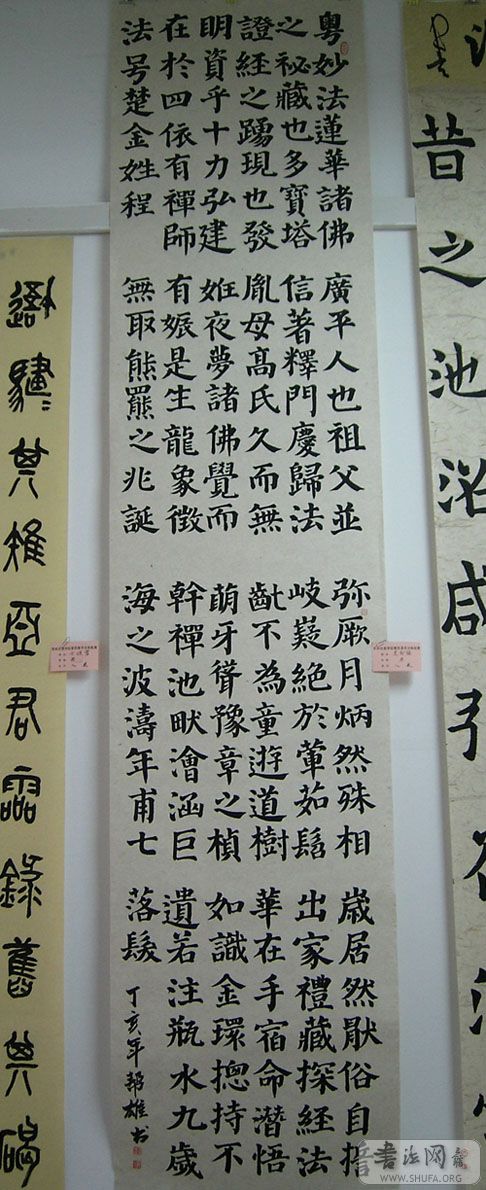 粤妙法蓮華諸佛
之祕藏也多寶塔
證經之踴現也發
明資乎十力弘建
在於四依有禪師
法号楚金姓程
廣平人也祖父並
信著釋門慶歸法
胤母高氏久而無
姙夜夢諸佛覺而
有娠是生龍象徵
無取熊羆之兆誕
弥厥月炳然殊相
岐嶷絕於葷茹髫
齔不為童遊道樹
萌牙聳豫章之楨
幹禪池畎澮涵巨
海之波濤年甫七
歲居然厭俗自誓
出家禮藏探經法
華在手宿命潛悟
如識金環揔持不
遺若注瓶水九歲
落髮
丁亥年 雄书
昔之池沼咸
書法网
WWW.SHUFA.ORG